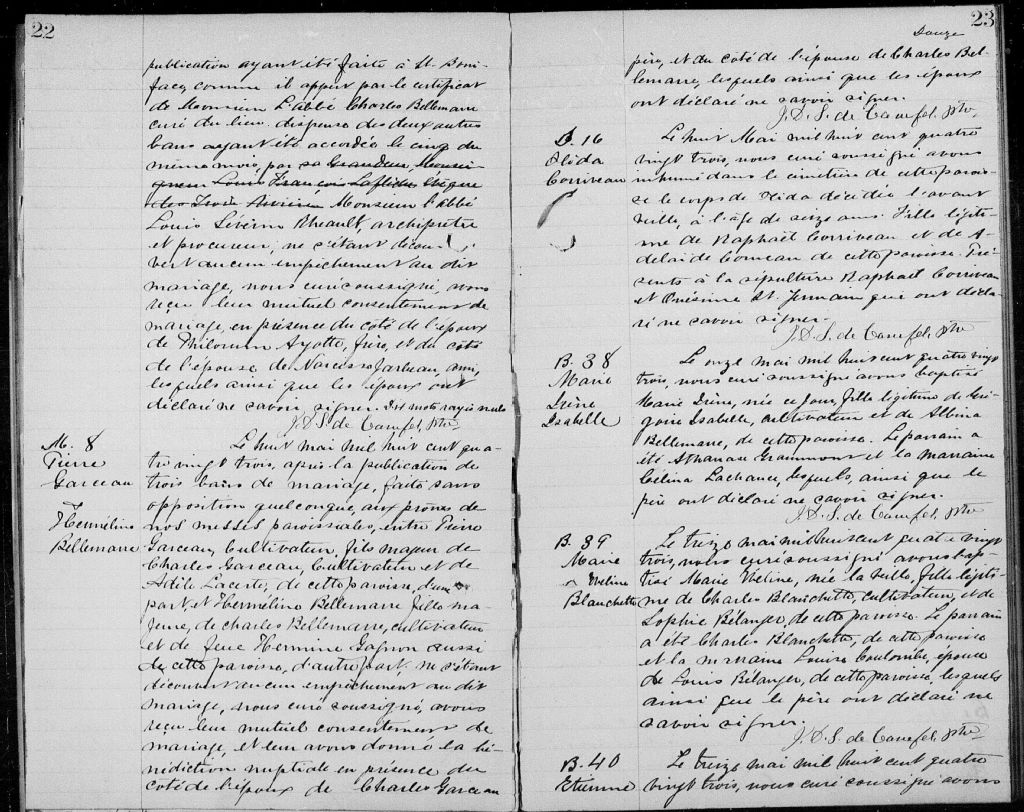 22
publication ayant été faite à St Boni-
face, comme il appert par le certificat
de Monsieur L'abbé Charles Bellemare
curé du lieu. dispense des deux autres
bans ayant été accordée le cinq du
même mois, par sa Grandeur, Monsei-
gneur Louis François Laflèche Evêque
des Trois Rivières Monsieur l'abbé
Louis Séverin Rheault, archiprêtre
et procureur, ne s'étant décou-
vert aucun empêchement au dit
mariage, nous curé soussigné, avons
reçu leur mutuel consentement de
mariage, en présence du côté de l'époux
de Philomin Ayotte, père, et du côté
de l'épouse de Narcisse Garceau, ami,
lesquels ainsi que les époux ont
déclaré ne savoir signer. Dix mots rayés nuls
J.D.S. de Carufel, Ptre
M. 8
Pierre
Garceau
Herméline
Bellemare
Le huit mai mil huit cent qua-
tre vingt trois, après la publication de
trois bans de mariage, faite sans
opposition quelconque, aux prônes de
nos messes paroissiales, entre Pierre
Garceau, Cultivateur, fils majeur de
Charles Garceau, Cultivateur et de
Adèle Lacerte, de cette paroisse, d'une
part et Herméline Bellemare fille ma-
jeure, de Charles Bellemare, cultivateur
et de feue Hermine Gagnon aussi
de cette paroisse, d'autre part, ne s'étant
découvert aucun empêchement au dit
mariage, nous curé soussigné, avons
reçu leur mutuel consentement de
mariage, et leur avons donné la bé-
nédiction nuptiale en présence du
côté de l'époux de Charles Garceau
23
Douze
père, et du côté de l'épouse de Charles Bel-
lemare, lesquels ainsi que les époux
ont déclaré ne savoir signer.
J.D.S. de Carufel, Ptre
S. 16
Olida
Corriveau
Le huit Mai mil huit cent quatre
vingt trois, nous curé soussigné avons
inhumé dans le cimetière de cette parois-
se le corps de Olida décédée l'avant
veille, à l'âge de seize ans. Fille légiti-
me de Raphaël Corriveau et de A-
delaïde Comeau de cette paroisse. Pré-
sents à la sépulture Raphaël Corriveau
et Onésime St. Germain qui ont décla-
ré ne savoir signer.
J.D.S. de Carufel, Ptre
B. 38
Marie
Irène
Isabelle
Le onze mai mil huit cent quatre vingt
trois, nous curé soussigné avons baptisé
Marie Irène, née ce jour, fille légitime de Gré-
goire Isabelle, cultivateur et de Albina
Bellemare, de cette paroisse. Le parrain a
été Athanase Grammont et la marraine
Célina Lachance, lesquels, ainsi que le
père ont déclaré ne savoir signer.
J.D.S. de Carufel, Ptre
B. 39
Marie
Evéline
Blanchette
Le treize mai mil huit cent quatre vingt
trois, nous curé soussigné avons bap-
tisé Marie Evéline, née la veille, fille légiti-
me de Charles Blanchette, cultivateur, et de
Sophie Bélanger, de cette paroisse. Le parrain
a été Charles Blanchette, de cette paroisse
et la marraine Louise Coulombe, épouse
de Louis Bélanger, de cette paroisse, lesquels
ainsi que le père ont déclaré ne
savoir signer.
J.D.S. de Carufel, Ptre
B. 40
Etienne
Le treize mai mil huit cent quatre
vingt trois, nous curé soussigné avons